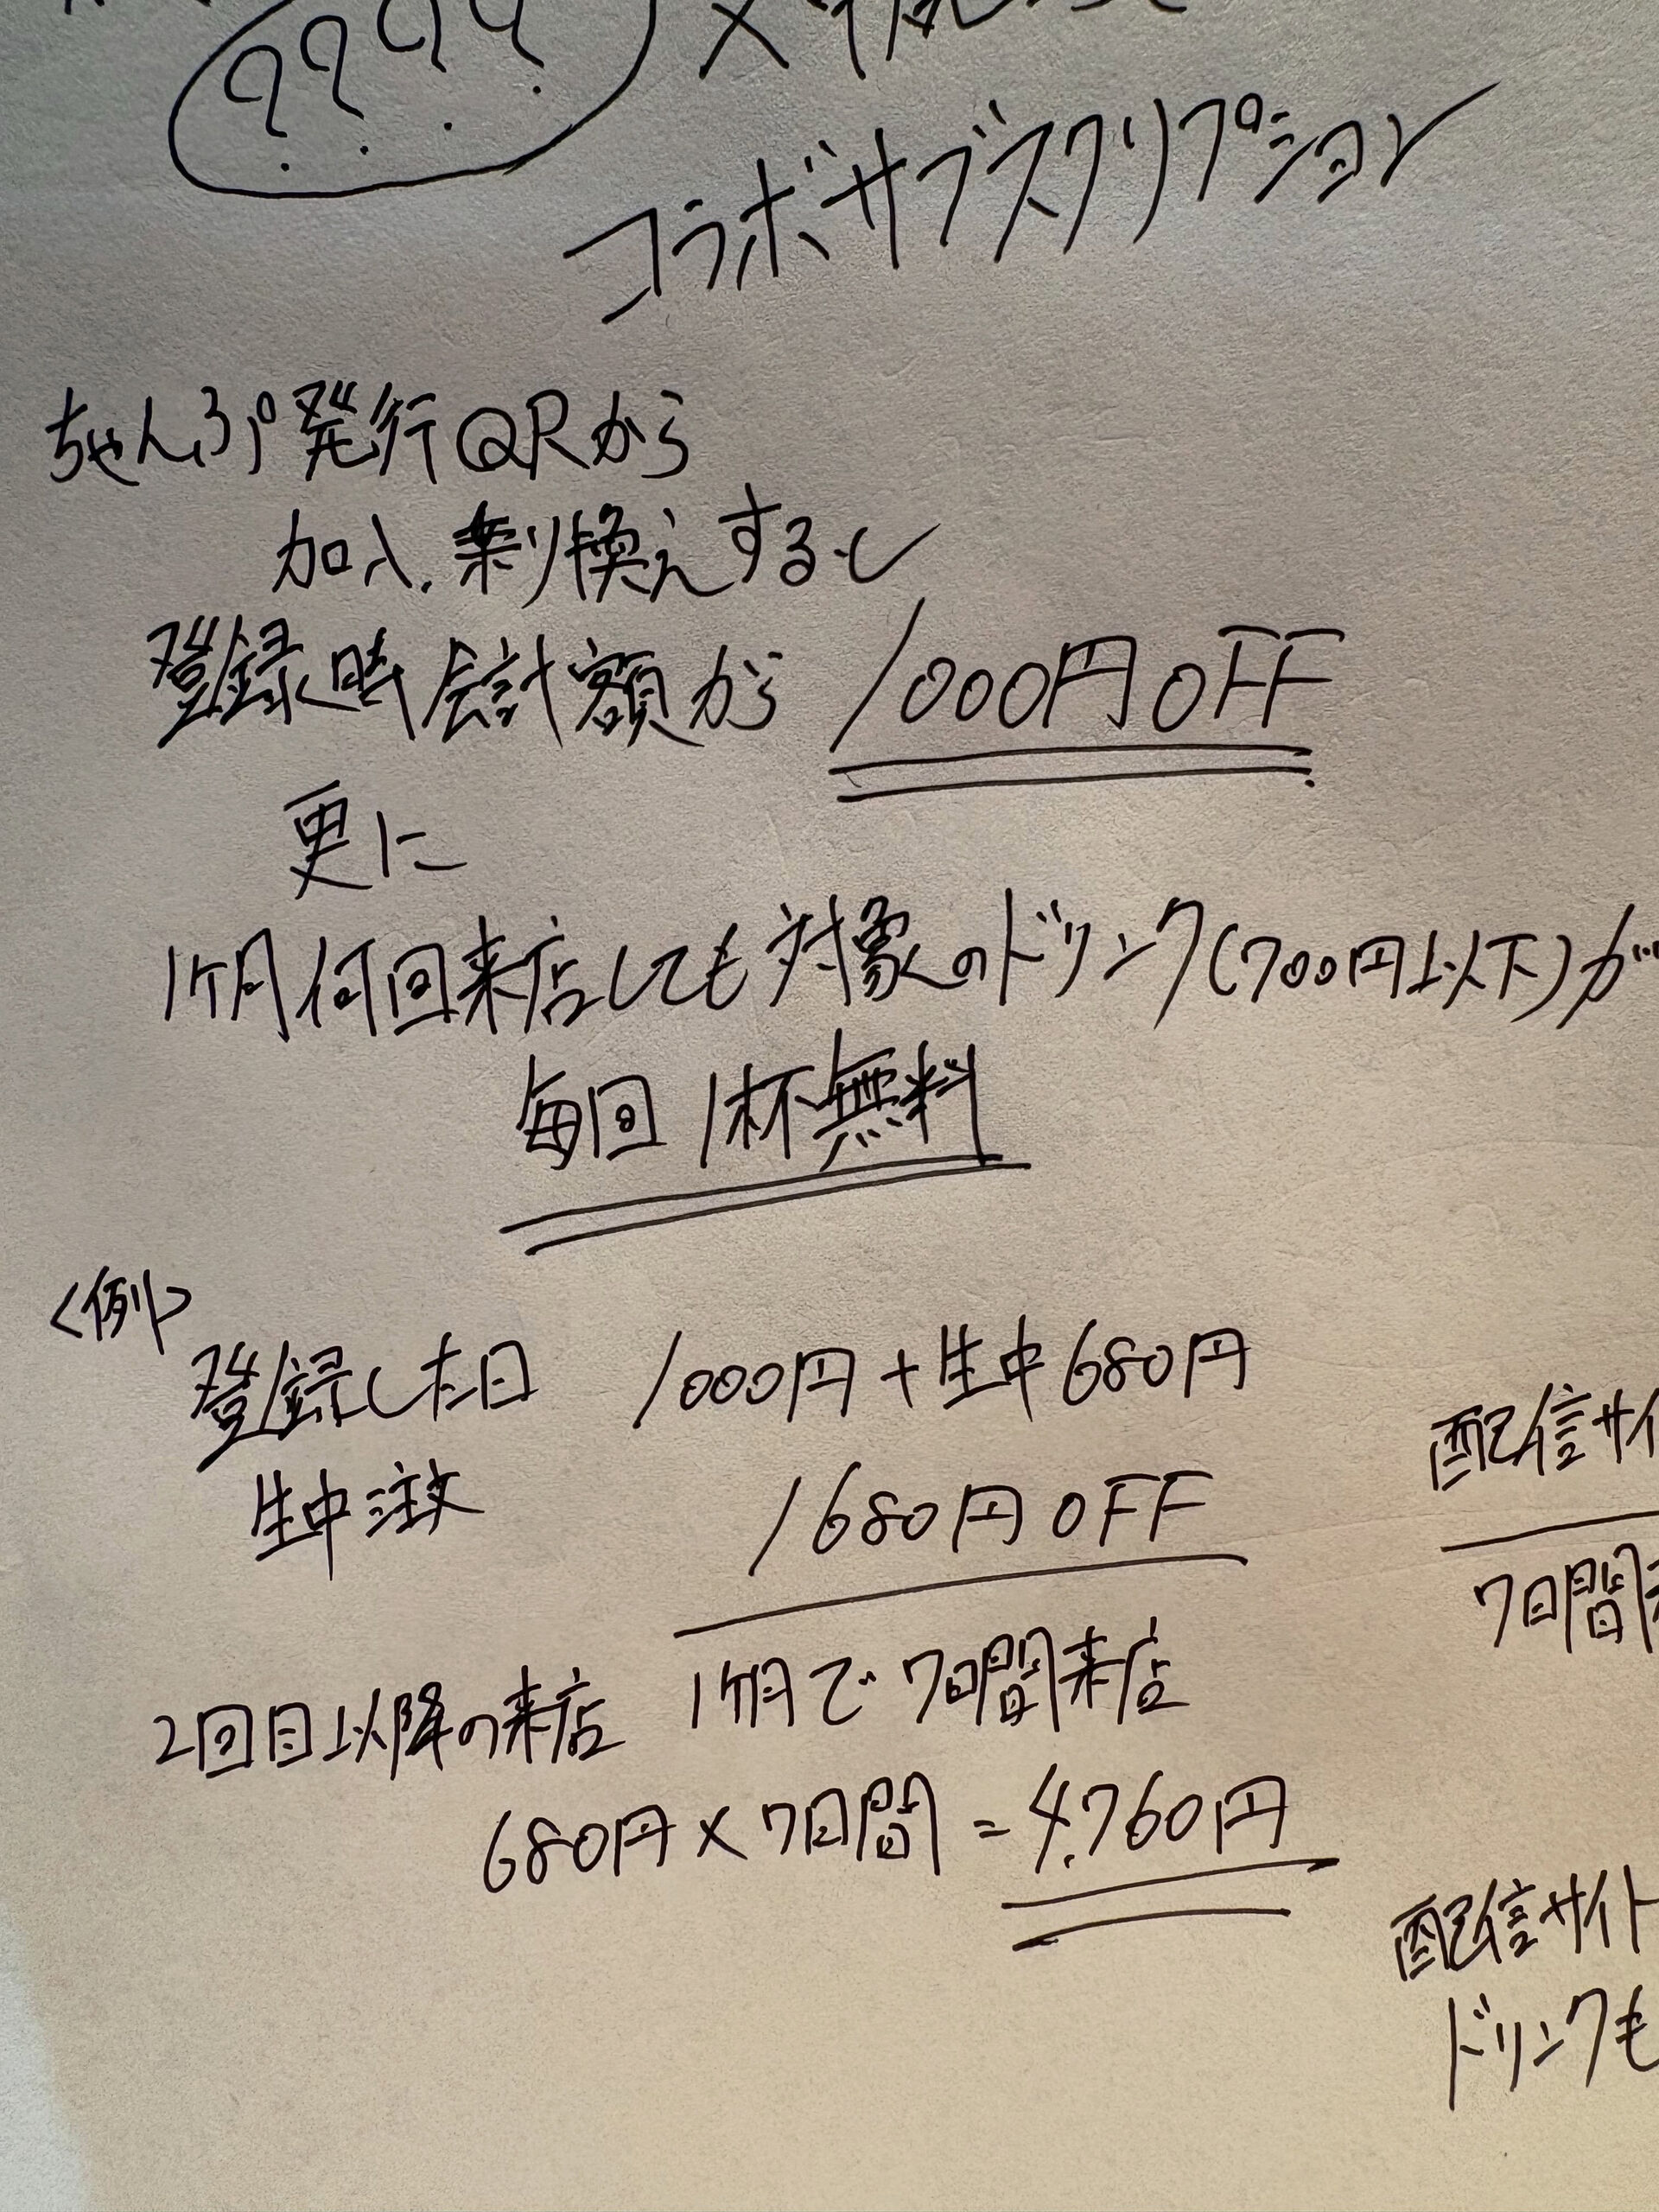 ????
コラボサブスクリプション
ちゃんぷ発行QRから
加入.乗り換えすると
登録時会計額から 1000円OFF
更に
1ヶ月何回来店しても対象のドリンク(700円以下)が
毎回1杯無料
<例>
登録した日 1000円+生中680円
生中注文 1680円OFF
2回目以降の来店 1ヶ月で7日間来店
680円×7日間=4.760円
配信サイ
7日間
配信サイト
ドリンクも